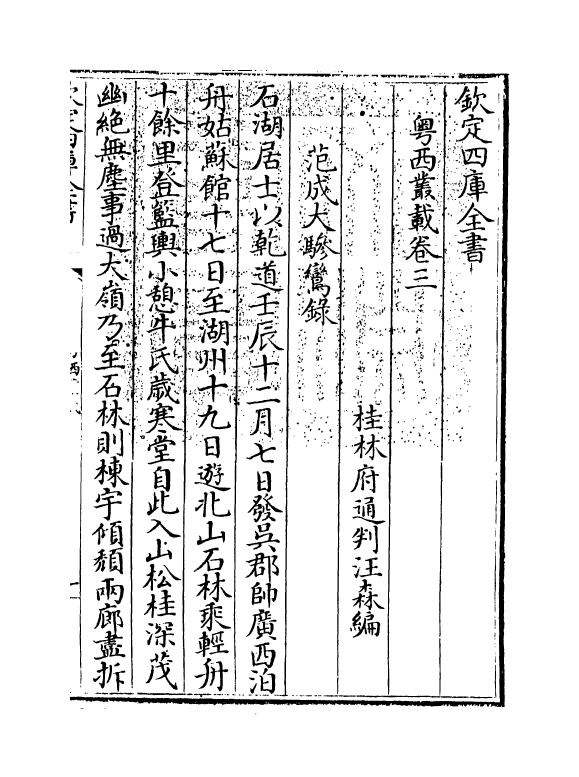 欽定四庫全書
粤西叢載卷三
桂林府通判汪森編
范成大驂鸞錄
石湖居士以乾道壬辰十二月七日發吳郡帥廣西泊
舟姑蘇館十七日至湖州十九日遊北山石林乘輕舟
十餘里登籃輿小憩牛氏歳寒堂自此入山松桂深茂
幽絶無塵事過大嶺乃至石林則棟宇傾頽兩廊盡拆